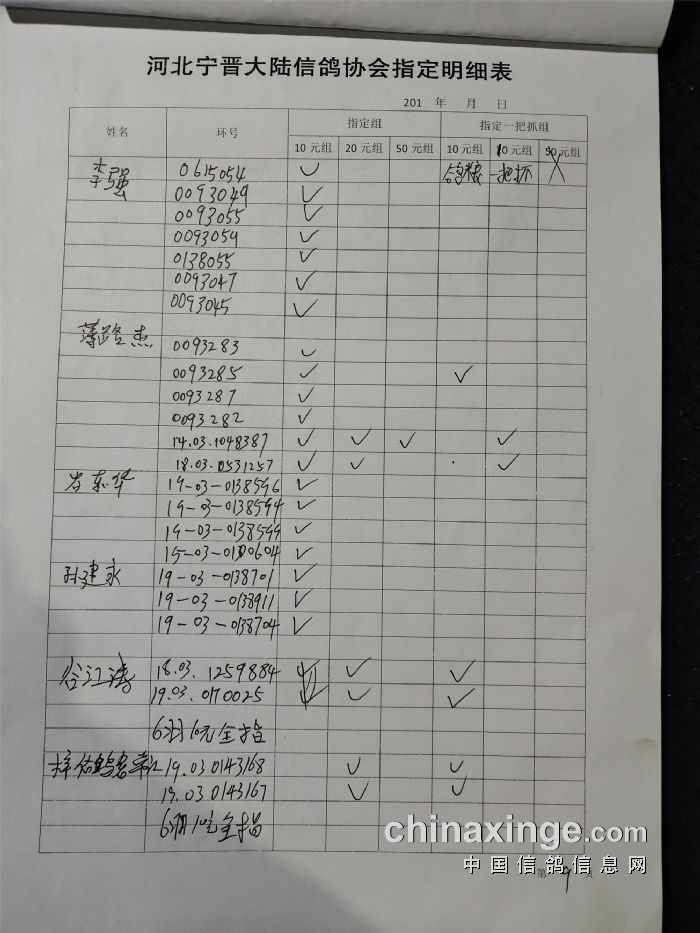 河北宁晋大陆信鸽协会指定明细表
201 年 月 日
姓名 环号 指定组 指定一把抓组
10元组 20元组 50元组 10元组 10元组 50元组
李强 0615054 ✓ 一把抓
0093049 ✓
0093055 ✓
0093054 ✓
0138055 ✓
0093047 ✓
0093045 ✓
薄路杰
0093283 ✓
0093285 ✓ ✓
0093287 ✓
0093282 ✓
14.03.1048387 ✓ ✓ ✓ ✓
18.03.0531257 ✓ ✓ ✓
谷东华 19-03-0138596 ✓
19-03-0138594 ✓
19-03-0138599 ✓
15-03-0100604 ✓
孙建永 19-03-0138701 ✓
19-03-0138911 ✓
19-03-0138704 ✓
谷江涛 18.03.1259884 ✓ ✓
19.03.0170025 ✓ ✓
6羽 全指
19.03 0143168 ✓ ✓
19.03 0143167 ✓ ✓
6羽10元全指
chinaxinge.com
中国信鸽信息网
第 9 页